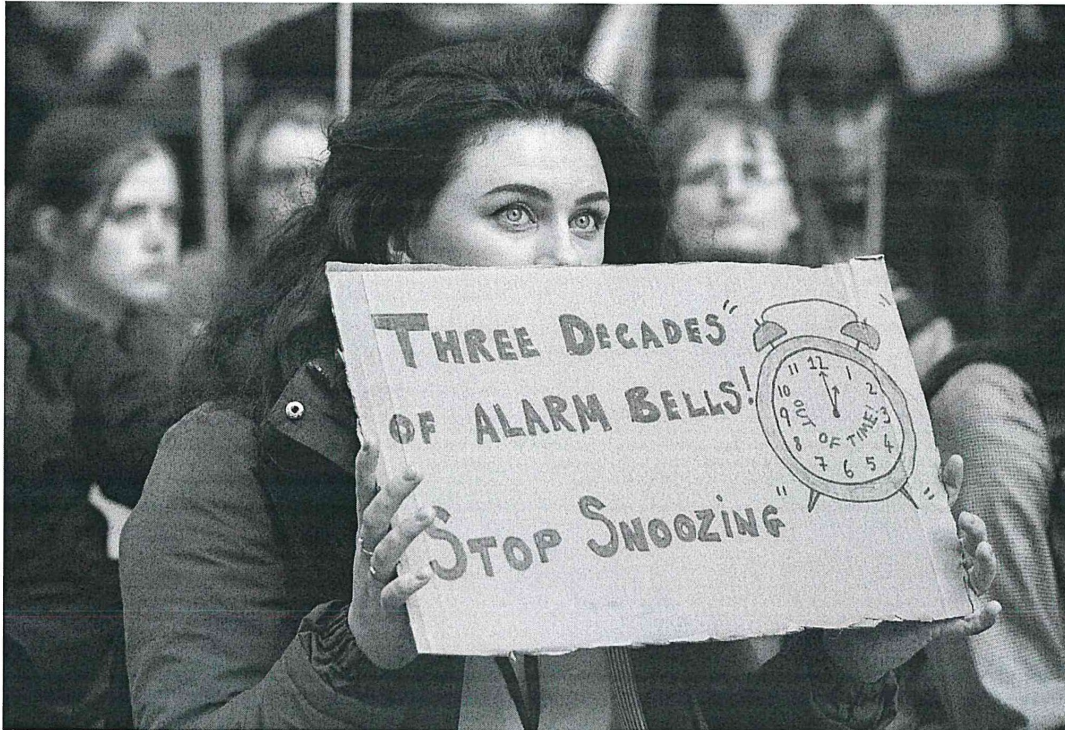 THREE DECADES"
OF ALARM BELLS!
STOP SNOOZING"
11 12 1
10 2
9 3
8 4
7 6 5
OUT OF TIME!